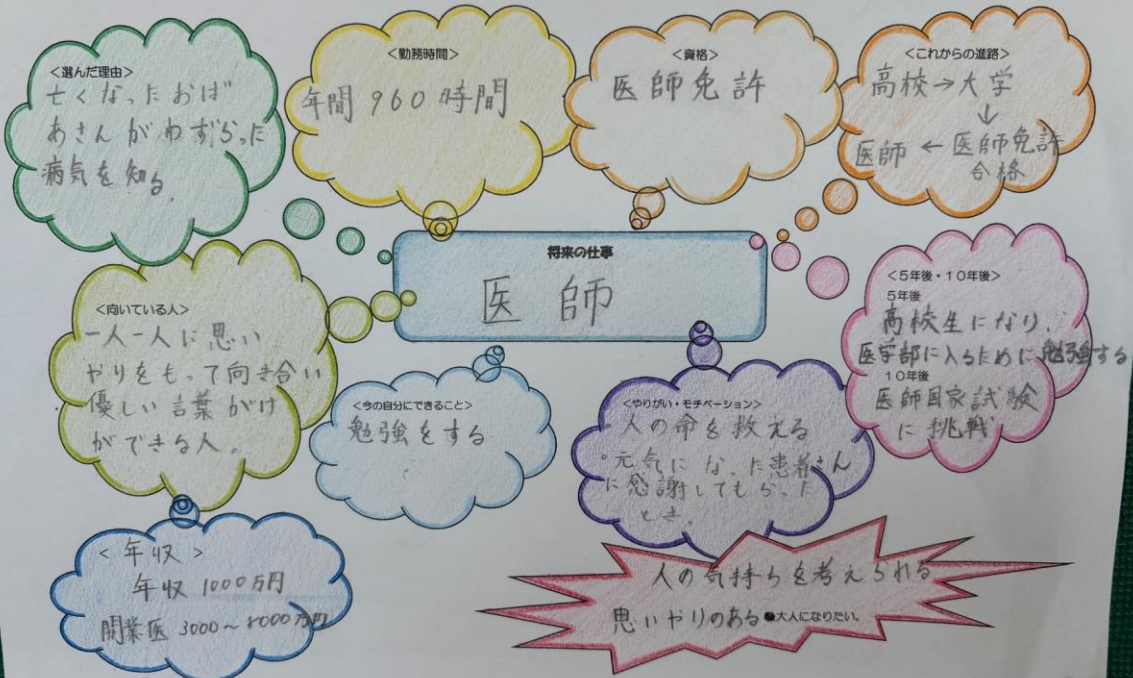 <選んだ理由>
亡くなったおば
あさんがわずらった
病気を知る。
<勤務時間>
年間 960時間
<資格>
医師免許
<これからの進路>
高校→大学
↓
医師 ← 医師免許
合格
将来の仕事
医師
<向いている人>
一人一人に思い
やりをもって向き合い
優しい言葉がけ
ができる人。
<今の自分にできること>
勉強をする
<やりがい・モチベーション>
人の命を救える
・元気になった患者さん
に感謝してもらった
とき。
<5年後・10年後>
5年後
高校生になり、
医学部に入るために、勉強する
10年後
医師国家試験
に挑戦
<年収>
年収 1000万円
開業医 3000～8000万円
人の気持ちを考えられる
思いやりのある大人になりたい。